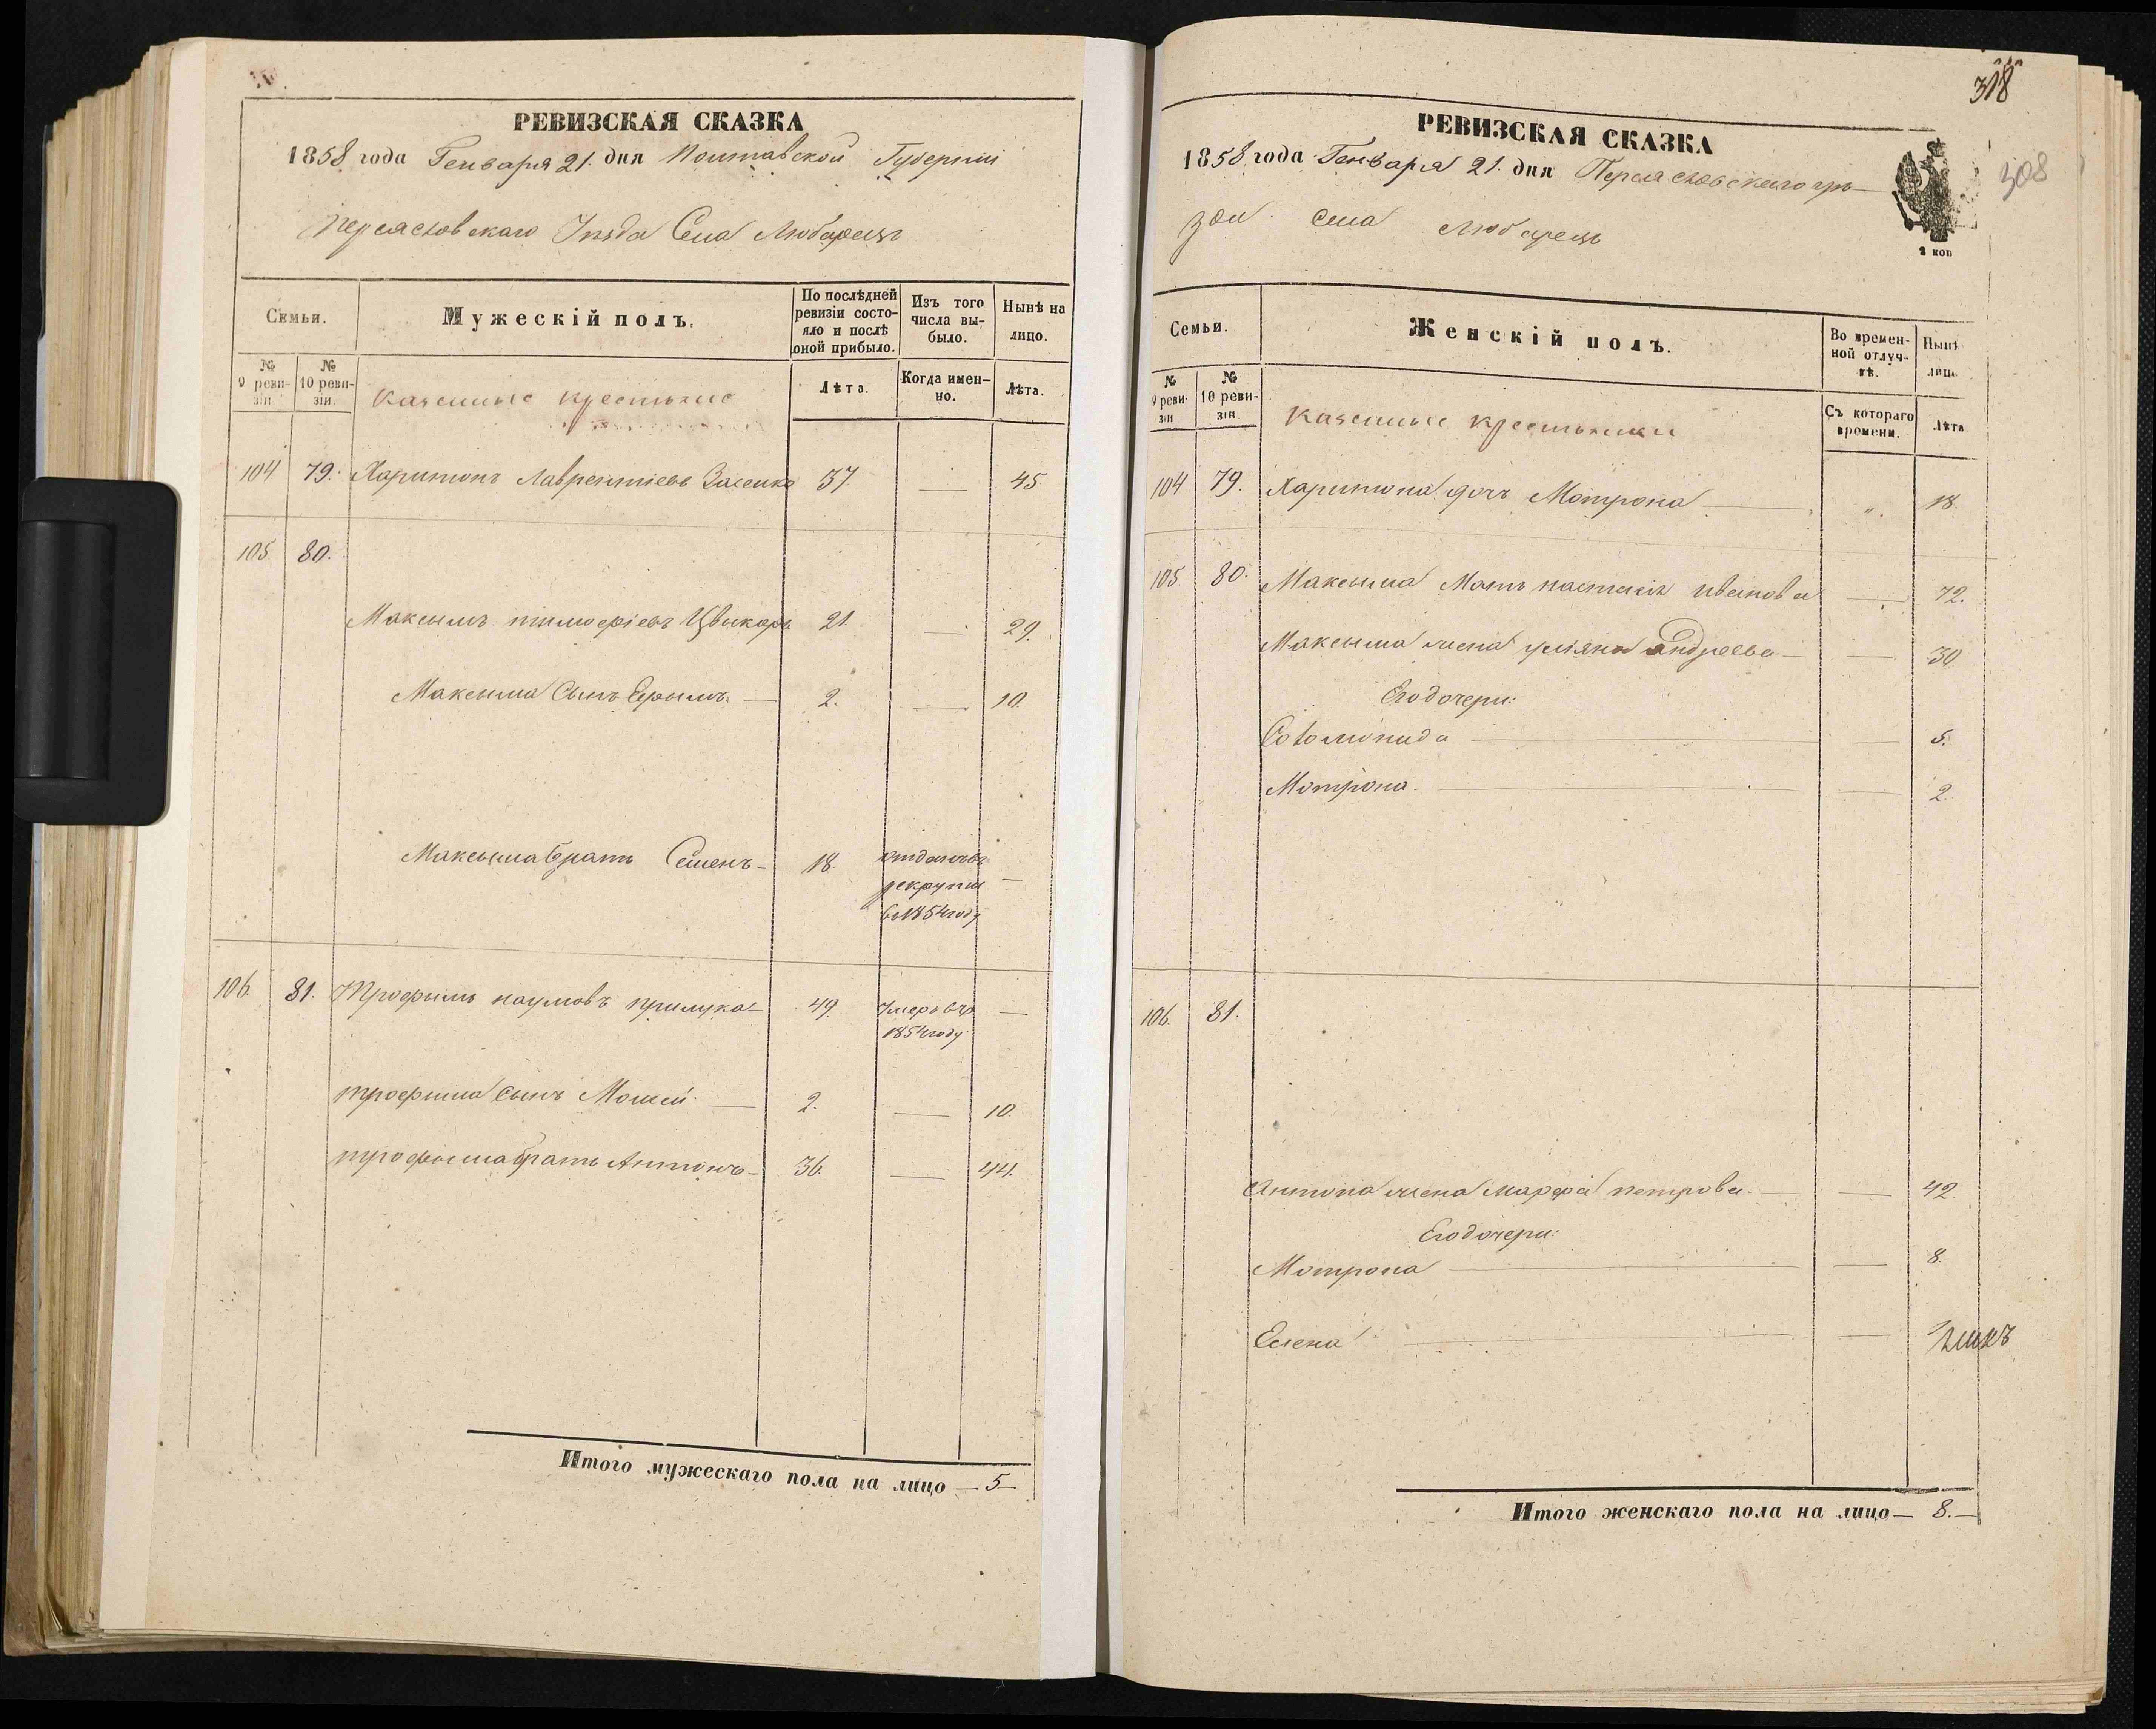 РЕВИЗСКАЯ СКАЗКА
1858 года Генваря 21. дня Полтавской Губерніи
Переяславскаго Уезда Села Любарецъ
Семьи.
Мужескій полъ.
По послѣдней ревизіи состояло и послѣ оной прибыло.
Изъ того числа выбыло.
Нынѣ на лицо.
№ 9 ревизіи.
№ 10 ревизіи.
казенные крестьяне
Лѣта.
Когда именно.
Лѣта.
104 79. Харитонъ Лаврентіевъ 37 — 45
105 80.
Максымъ тимофіевъ Цвыкоръ 21 — 29.
Максыма Сынъ Ефымъ. — 2. — 10.
Максыма братъ Семенъ — 18. отданъ въ —
рекруты
въ 1854 году
106. 81. Трофымъ наумовъ прилука — 49 Умеръ въ —
1854 году
трофыма сынъ Мосей. — 2. — 10.
трофыма братъ Антонъ — 36. — 44.
Итого мужескаго пола на лицо — 5 —
318
308
РЕВИЗСКАЯ СКАЗКА
1858 года Генваря 21. дня Переяславскаго уѣ-
зда села Любарецъ
2 коп
Семьи.
Женскій полъ.
Во временной отлучкѣ.
Нынѣ лицо
№ 9 ревизіи
№ 10 ревизіи.
казенные крестьянки
Съ котораго времени.
Лѣта
104 79. Харитона дочь Мотрона — „ 18.
105. 80. Максыма Мать настасія иванова — 72.
Максыма жена уліяна андреева — — 30
Его дочери:
— — 5.
Мотрона. — — 2.
106. 81.
Антона жена марфа петрова. — — 42
Его дочери:
Мотрона — — 8.
Елена — —
Итого женскаго пола на лицо — 8. —